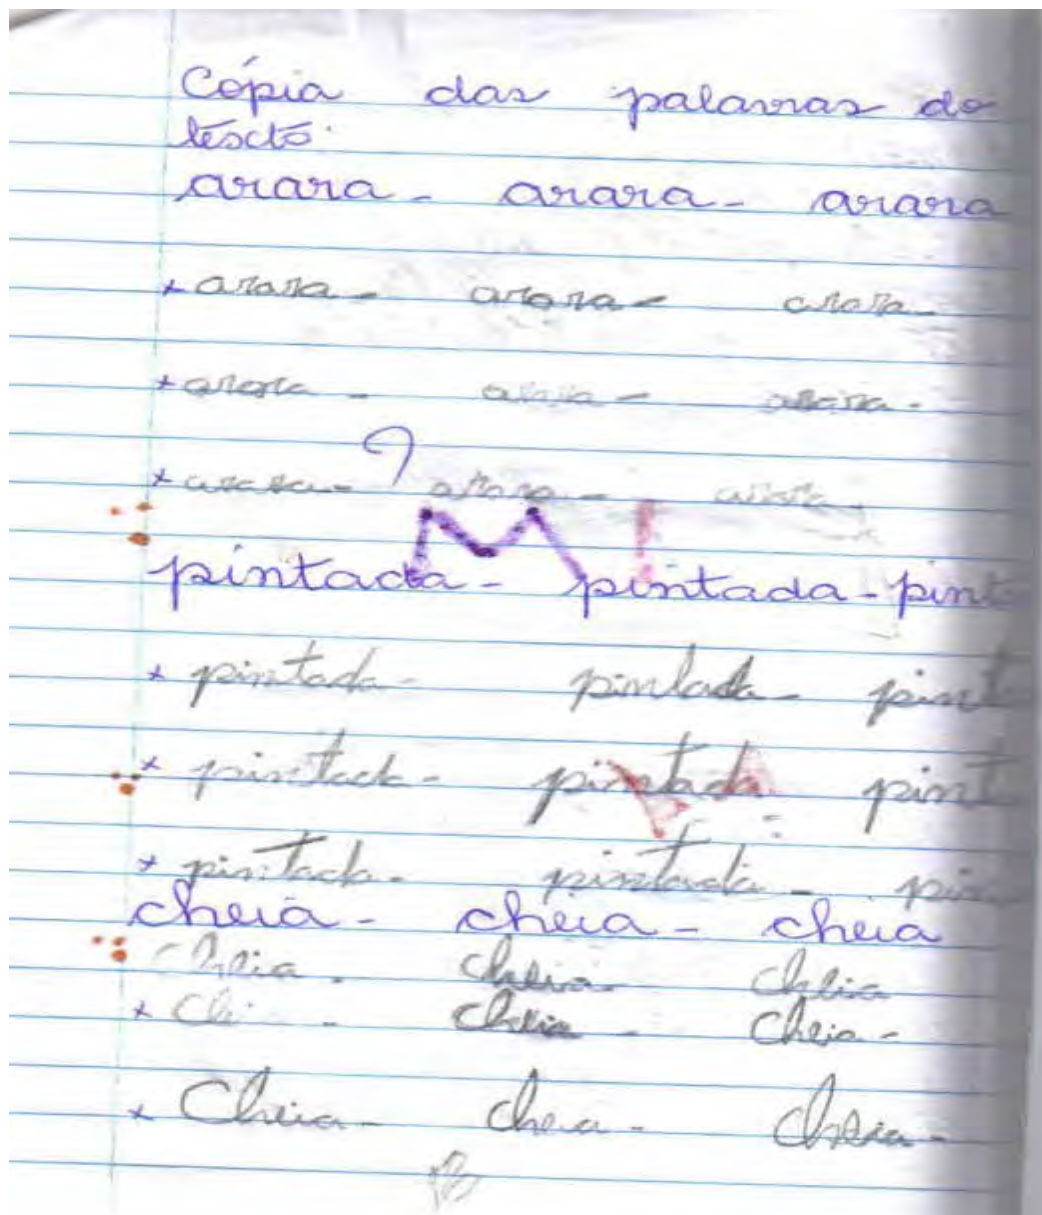 Cópia das palavras do
texto.
arara - arara - arara
x arara - arara - arara -
x arara - arara - arara -
x arara - arara - arara
pintada - pintada - pint
x pintada - pintada - pint
x pintada - pintada pint
x pintada - pintada - pin
cheia - cheia - cheia
cheia - cheia - cheia
x Chei - cheia - cheia -
x Cheia - chea - cheia -